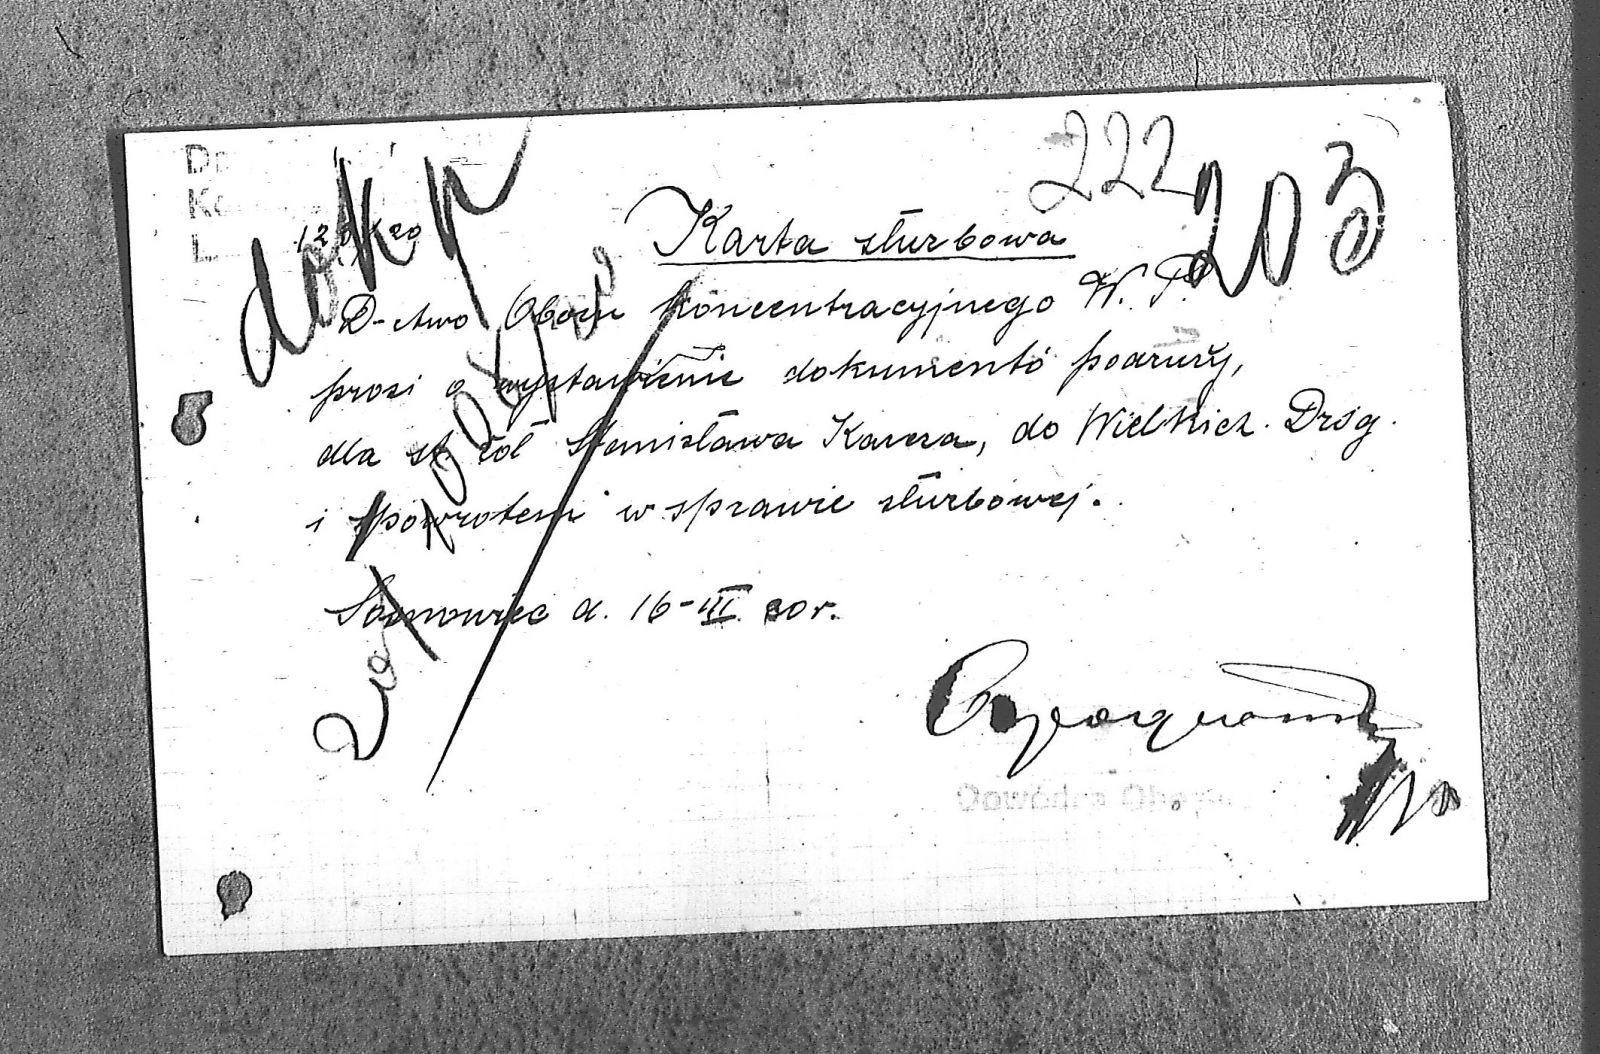 222
203
Karta służbowa
D-ctwo Obozu Koncentracyjnego W. P.
prosi o wystawienie dokumentó podruży,
dla st. żoł Stanisława Karcza, do Wielkich. Dróg.
i spowrotem w sprawie służbowej.
Sosnowiec d. 16-III 20r.
Dowódca Obozu